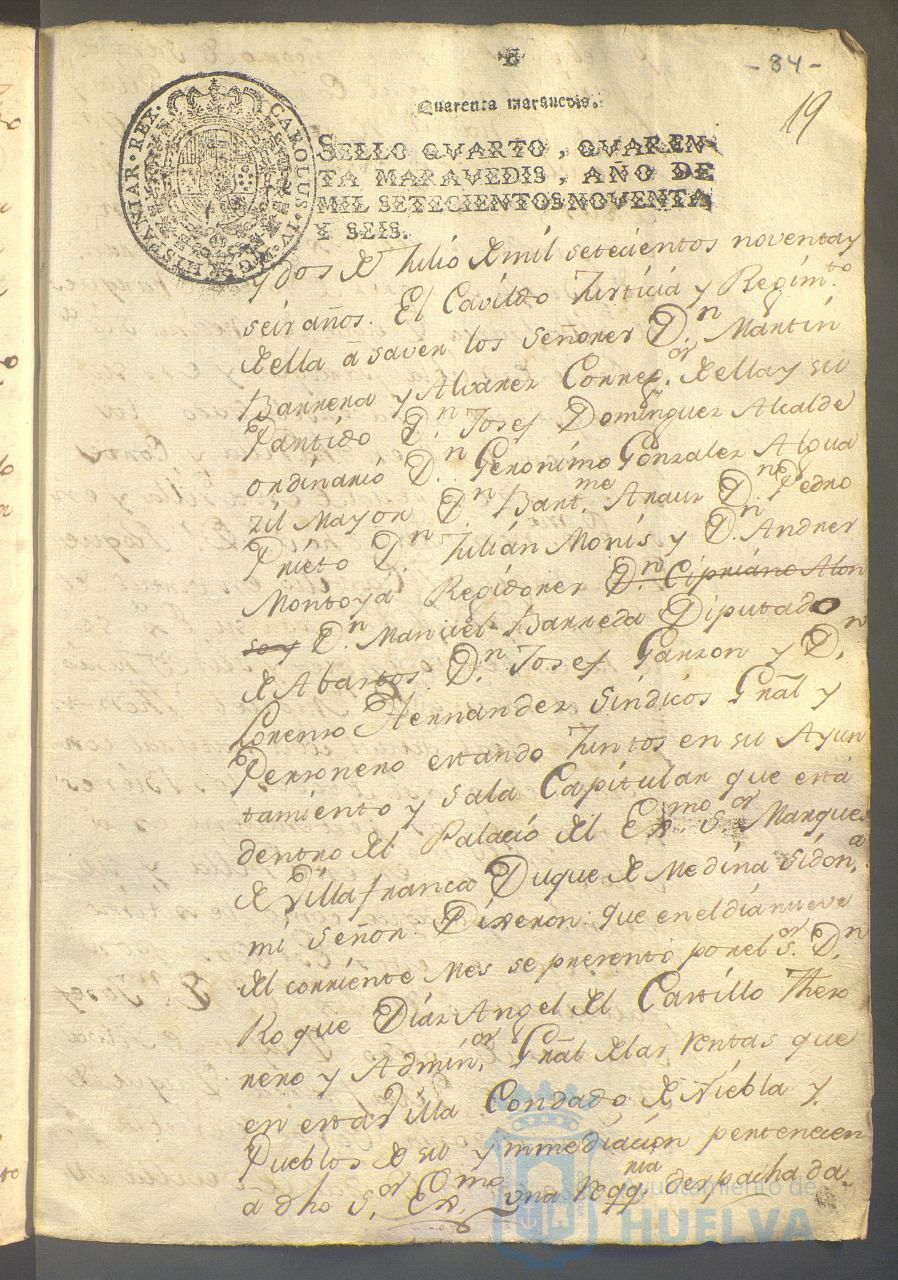 - 84 -
19
Quarenta maravedis.
SELLO QVARTO, QVAREN-
TA MARAVEDIS, AÑO DE
MIL SETECIENTOS NOVENTA
Y SEIS.
CAROLUS·IV·D·G· HISPANIAR·REX·
y dos de Julio de mil setecientos noventa y
seis años. El Cavildo Justicia y Regimto
de ella â saver los señores Dn. Martin
Barrera y Alvarez Correxor. de ella y su
Partido Dn. Josef Dominguez Alcalde
ordinario Dn Geronimo Gonzalez Algua
zil Mayor Dn. Bartme. Anaur Dn. Pedro
Prieto Dn. Julián Monis y Dn. Andres
Montoya Regidores Dn. Cipriano Alon
so y Dn. Manuel Barreda Diputado
de Abastos. Dn. Josef Garzon y Dn.
Lorenzo Hernandez Sindicos Gñal y
Personero estando Juntos en su Ayun
tamiento y sala Capitular que está
dentro del Palacio del Exmo. Sor Marques
de Villafranca Duque de Medina Sidona.
mi señor: Dixeron: que en el dia nueve
del corriente Mes se presentó por el Sor. Dn
Roque Diaz Angel del Castillo Theso
rero y Adminor. Gñal de las rentas que
en esta Villa Condado de Niebla y
Pueblos de su ynmediacion pertenecen
â dho Sor. Exmo. una reqqria despachada
Ayuntamiento de
HUELVA